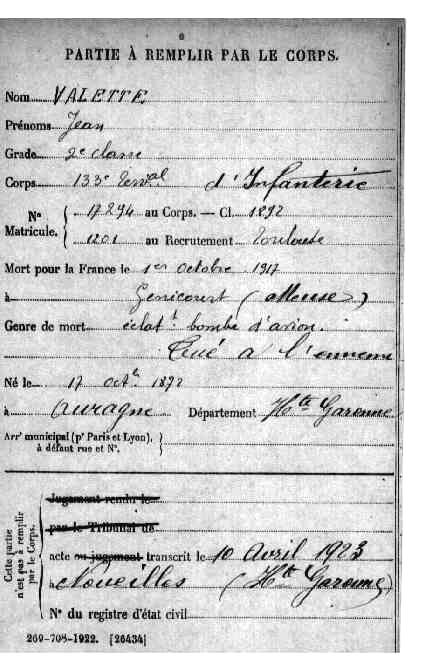 PARTIE À REMPLIR PAR LE CORPS.
Nom VALETTE
Prénoms Jean
Grade 2e classe
Corps 133e Terr.al d'Infanterie
Nº Matricule. 17294 au Corps. — Cl. 1892
1201 au Recrutement Toulouse
Mort pour la France le 1er Octobre 1917
à Génicourt (Meuse)
Genre de mort éclat t bombe d'avion.
Tué à l'ennemi
Né le 17 oct. 1872
à Auragne Département Hte Garonne
Arrt municipal (pr Paris et Lyon), à défaut rue et Nº.
Cette partie n'est pas à remplir par le Corps.
Jugement rendu le
par le Tribunal de
acte ou jugement transcrit le 10 Avril 1923
à Noueilles (Hte Garonne)
Nº du registre d'état civil
269-708-1922. [26434]